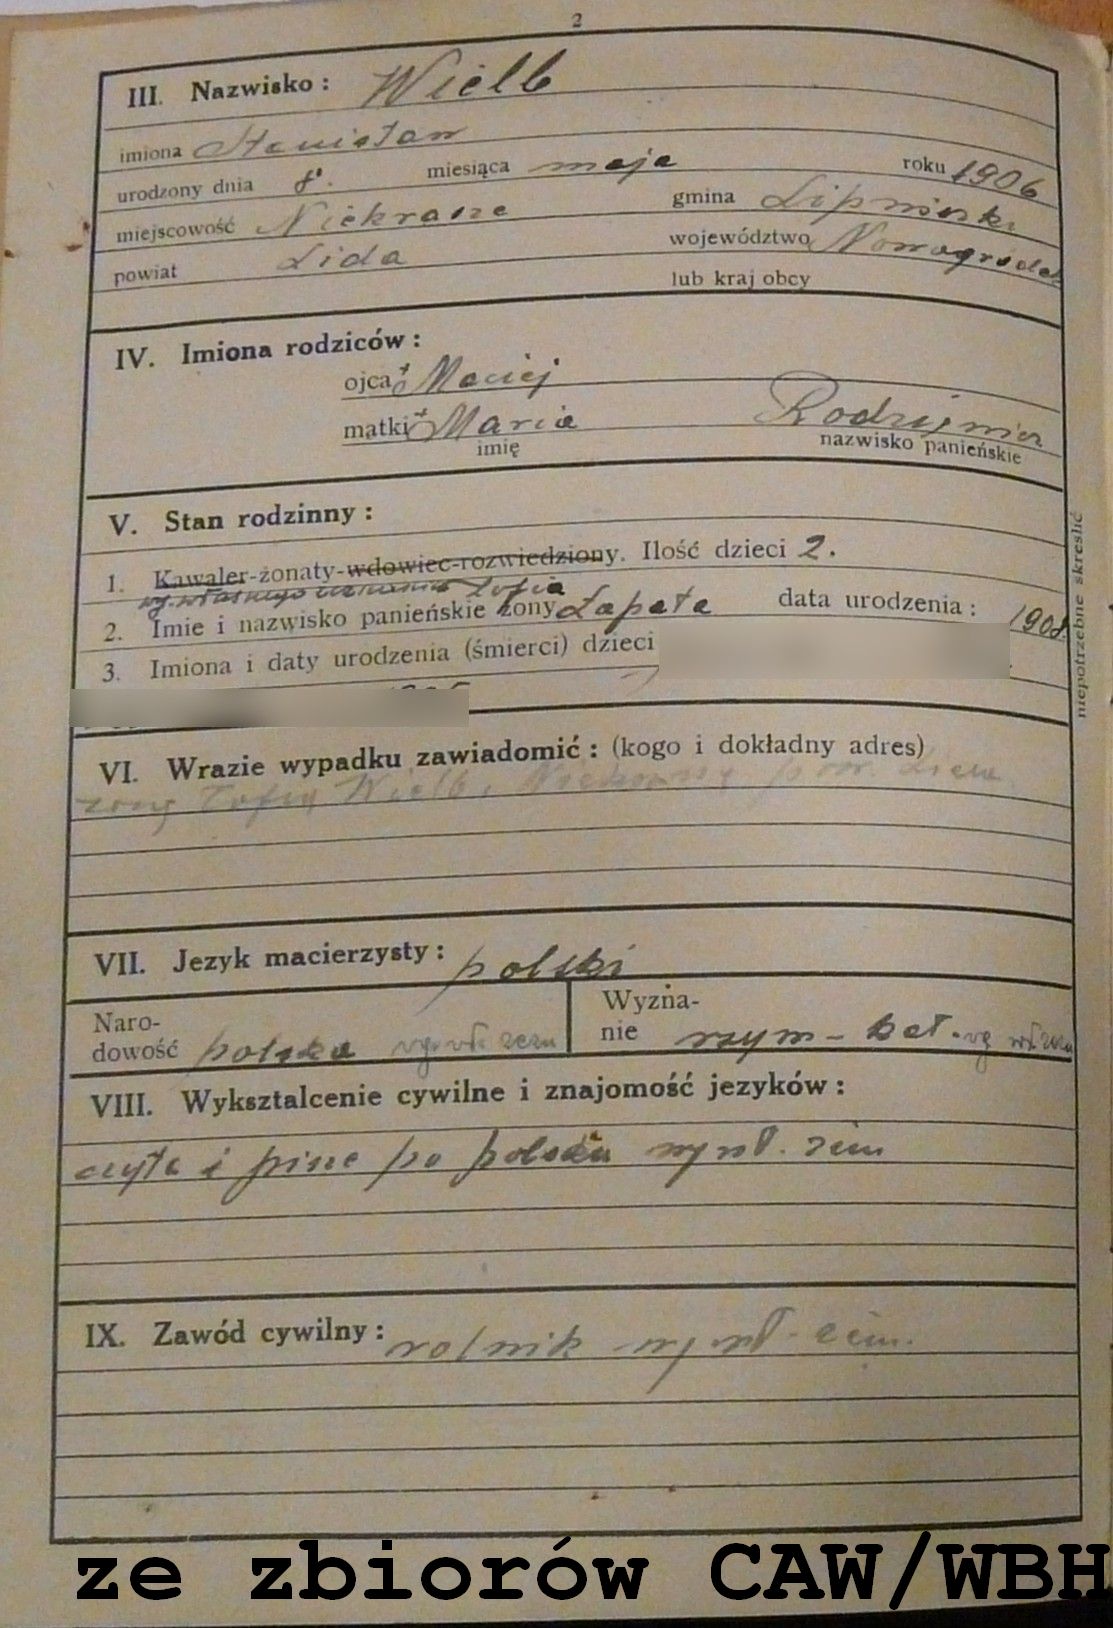 2
III. Nazwisko: Wielb
imiona Stanisław
urodzony dnia 8. miesiąca maja roku 1906
miejscowość Niekrasze gmina Lipniszki
powiat Lida województwo Nowogródek
lub kraj obcy
IV. Imiona rodziców:
ojca + Maciej
matki + Maria
imię nazwisko panieńskie
V. Stan rodzinny:
1. Kawaler-żonaty-wdowiec-rozwiedziony. Ilość dzieci 2.
wg. własnego zeznania Zofia
2. Imie i nazwisko panieńskie żony Łapata data urodzenia: 1908.
3. Imiona i daty urodzenia (śmierci) dzieci
niepotrzebne skreślić
VI. Wrazie wypadku zawiadomić: (kogo i dokładny adres)
żonę Zofię Wielb, pow. Lida
VII. Jezyk macierzysty: polski
Naro-
dowość polska wg. wł. zezn
Wyzna-
nie rzym-kat. wg wł. zezn
VIII. Wyksztalcenie cywilne i znajomość jezyków:
czyta i pisze po polsku wg wł. zezn
IX. Zawód cywilny: rolnik wg. wł. zezn.
ze zbiorów CAW/WBH